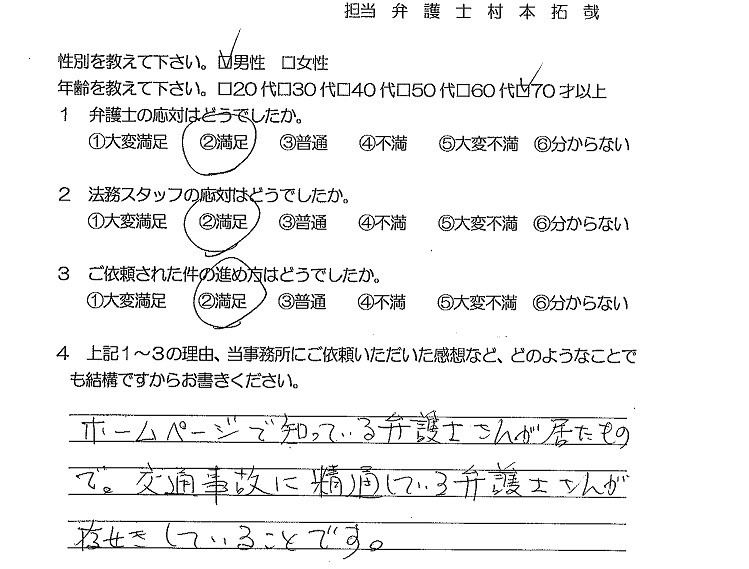 担当 弁 護 士 村 本 拓 哉
性別を教えて下さい。☑男性 □女性
年齢を教えて下さい。□20代□30代□40代□50代□60代☑70才以上
1 弁護士の応対はどうでしたか。
①大変満足 ②満足 ③普通 ④不満 ⑤大変不満 ⑥分からない
2 法務スタッフの応対はどうでしたか。
①大変満足 ②満足 ③普通 ④不満 ⑤大変不満 ⑥分からない
3 ご依頼された件の進め方はどうでしたか。
①大変満足 ②満足 ③普通 ④不満 ⑤大変不満 ⑥分からない
4 上記1~3の理由、当事務所にご依頼いただいた感想など、どのようなことで
も結構ですからお書きください。
ホームページで知っている弁護士さんが居たもの
で。交通事故に精通している弁護士さんが
していることです。